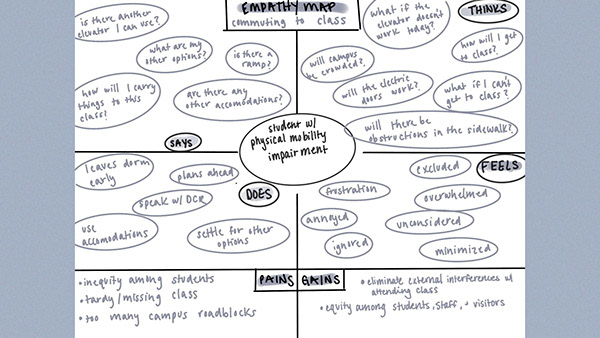 EMPATHY MAP
commuting to class
is there another
elevator I can use?
what are my
other options?
is there a
ramp?
how will I carry
things to this
class?
are there any
other accomodations?
SAYS
THINKS
what if the
elevator doesn't
work today?
how will I get
to class?
will campus
be crowded?
will the electric
doors work?
what if I can't
get to class?
will there be
obstructions in the sidewalk?
student w/
physical mobility
impairment
leaves dorm
early
plans ahead
speak w/ DCR
use
accomodations
settle for other
options
DOES
FEELS
excluded
frustration
overwhelmed
annoyed
unconsidered
ignored
minimized
PAINS
• inequity among students
• tardy/missing class
• too many campus roadblocks
GAINS
• eliminate external interferences w/
attending class
• equity among students, staff, + visitors